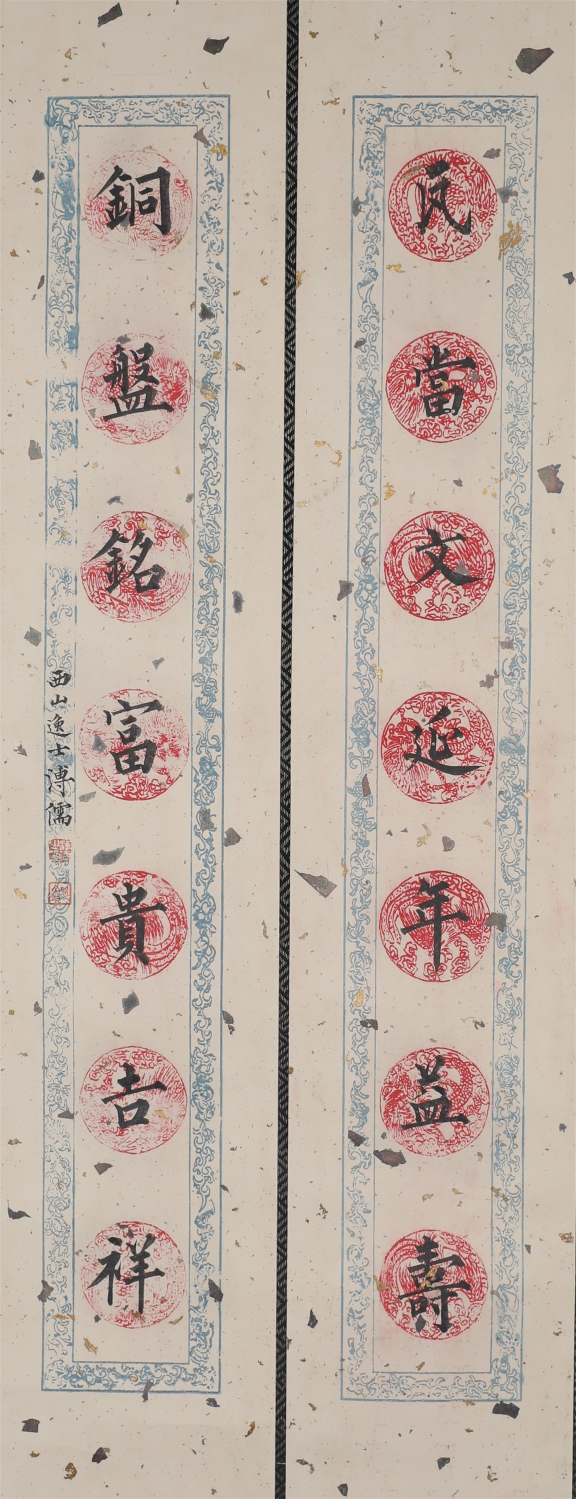 瓦當文延年益壽
銅盤銘富貴吉祥
西山逸士溥儒